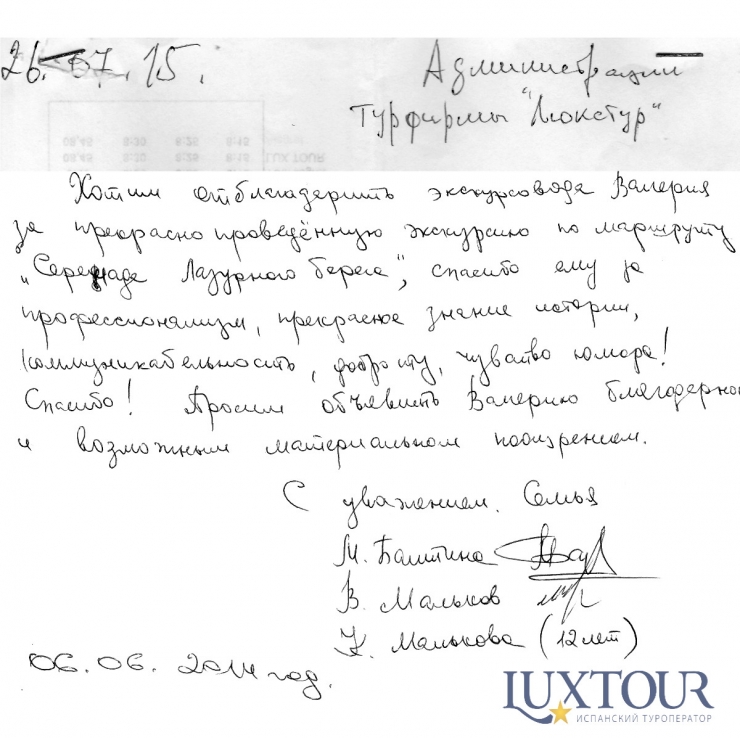 26. 07. 15.
Администрации
Турфирмы "Люкстур"
08,45 8:30 8:25 8:15
08,45 8:30 8:25 8:15 LUX TOUR
Хотим отблагодарить экскурсовода Валерия
за прекрасно проведённую экскурсию по маршруту
„Серенада Лазурного берега", спасибо ему за
профессионализм, прекрасное знание истории,
коммуникабельность, доброту, чувство юмора!
Спасибо! Просим объявить Валерию благодарно
и возможным материальном поощрением.
С уважением. Семья
М. Баштина
В. Мальков
К. Малькова (12 лет)
06. 06. 2014 год.
LUXTOUR
ИСПАНСКИЙ ТУРОПЕРАТОР